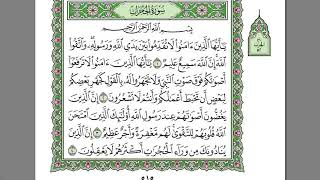 سُورَةُ الحُجُرَاتِ
بِسْمِ اللَّهِ الرَّحْمَٰنِ الرَّحِيمِ
يَا أَيُّهَا الَّذِينَ ءَامَنُوا لَا تُقَدِّمُوا بَيْنَ يَدَيِ اللَّهِ وَرَسُولِهِ وَاتَّقُوا
اللَّهَ إِنَّ اللَّهَ سَمِيعٌ عَلِيمٌ ١ يَا أَيُّهَا الَّذِينَ ءَامَنُوا لَا تَرْفَعُوا
أَصْوَاتَكُمْ فَوْقَ صَوْتِ النَّبِيِّ وَلَا تَجْهَرُوا لَهُ بِالْقَوْلِ كَجَهْرِ بَعْضِكُمْ
لِبَعْضٍ أَن تَحْبَطَ أَعْمَالُكُمْ وَأَنتُمْ لَا تَشْعُرُونَ ٢ إِنَّ الَّذِينَ
يَغُضُّونَ أَصْوَاتَهُمْ عِندَ رَسُولِ اللَّهِ أُولَٰئِكَ الَّذِينَ امْتَحَنَ
اللَّهُ قُلُوبَهُمْ لِلتَّقْوَىٰ لَهُم مَّغْفِرَةٌ وَأَجْرٌ عَظِيمٌ ٣ إِنَّ الَّذِينَ
يُنَادُونَكَ مِن وَرَاءِ الْحُجُرَاتِ أَكْثَرُهُمْ لَا يَعْقِلُونَ ٤
٥١٥